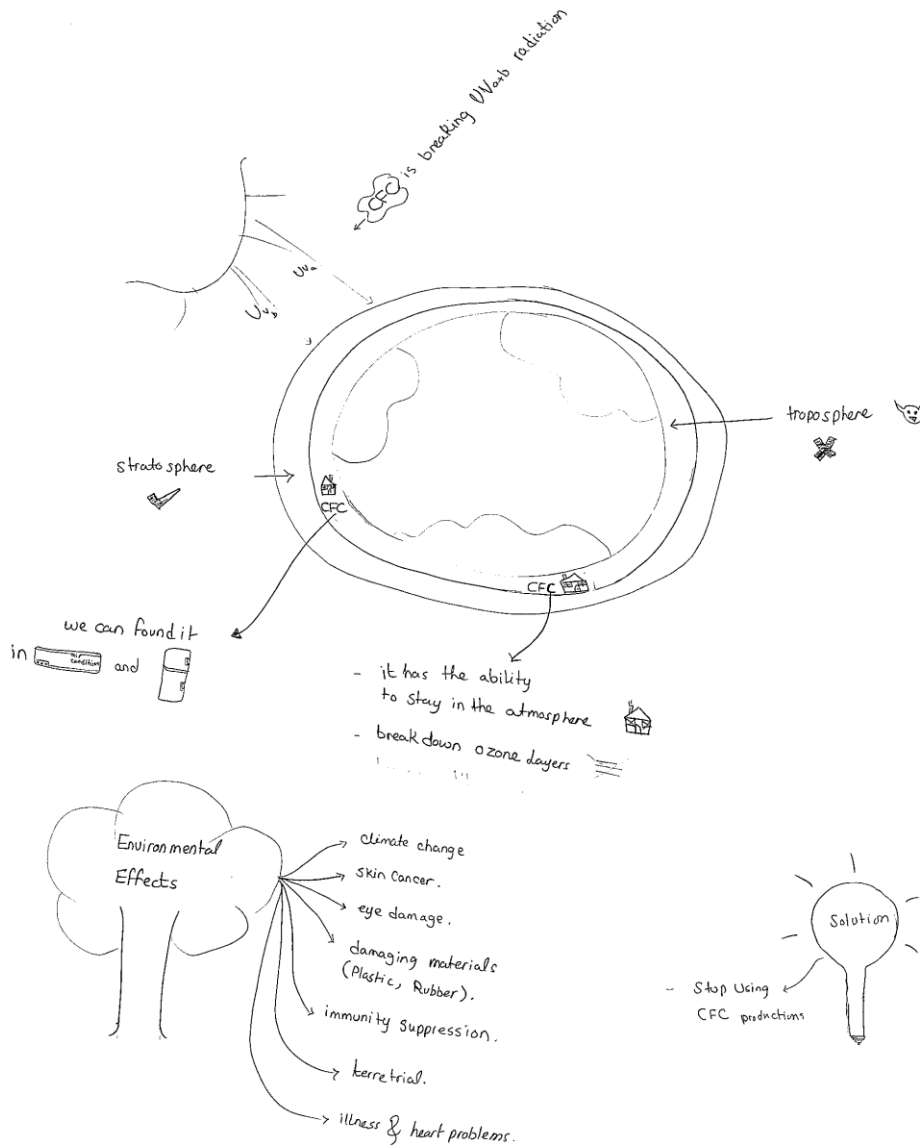 CFC is breaking UVa+b radiation
UVa
UVb
troposphere
stratosphere
CFC
CFC
we can found it
in air condition and
- it has the ability
to stay in the atmosphere
- break down ozone layers
Environmental
Effects
climate change
skin cancer.
eye damage.
damaging materials
(Plastic, Rubber).
immunity suppression.
terretrial.
illness & heart problems.
Solution
- Stop Using
CFC productions